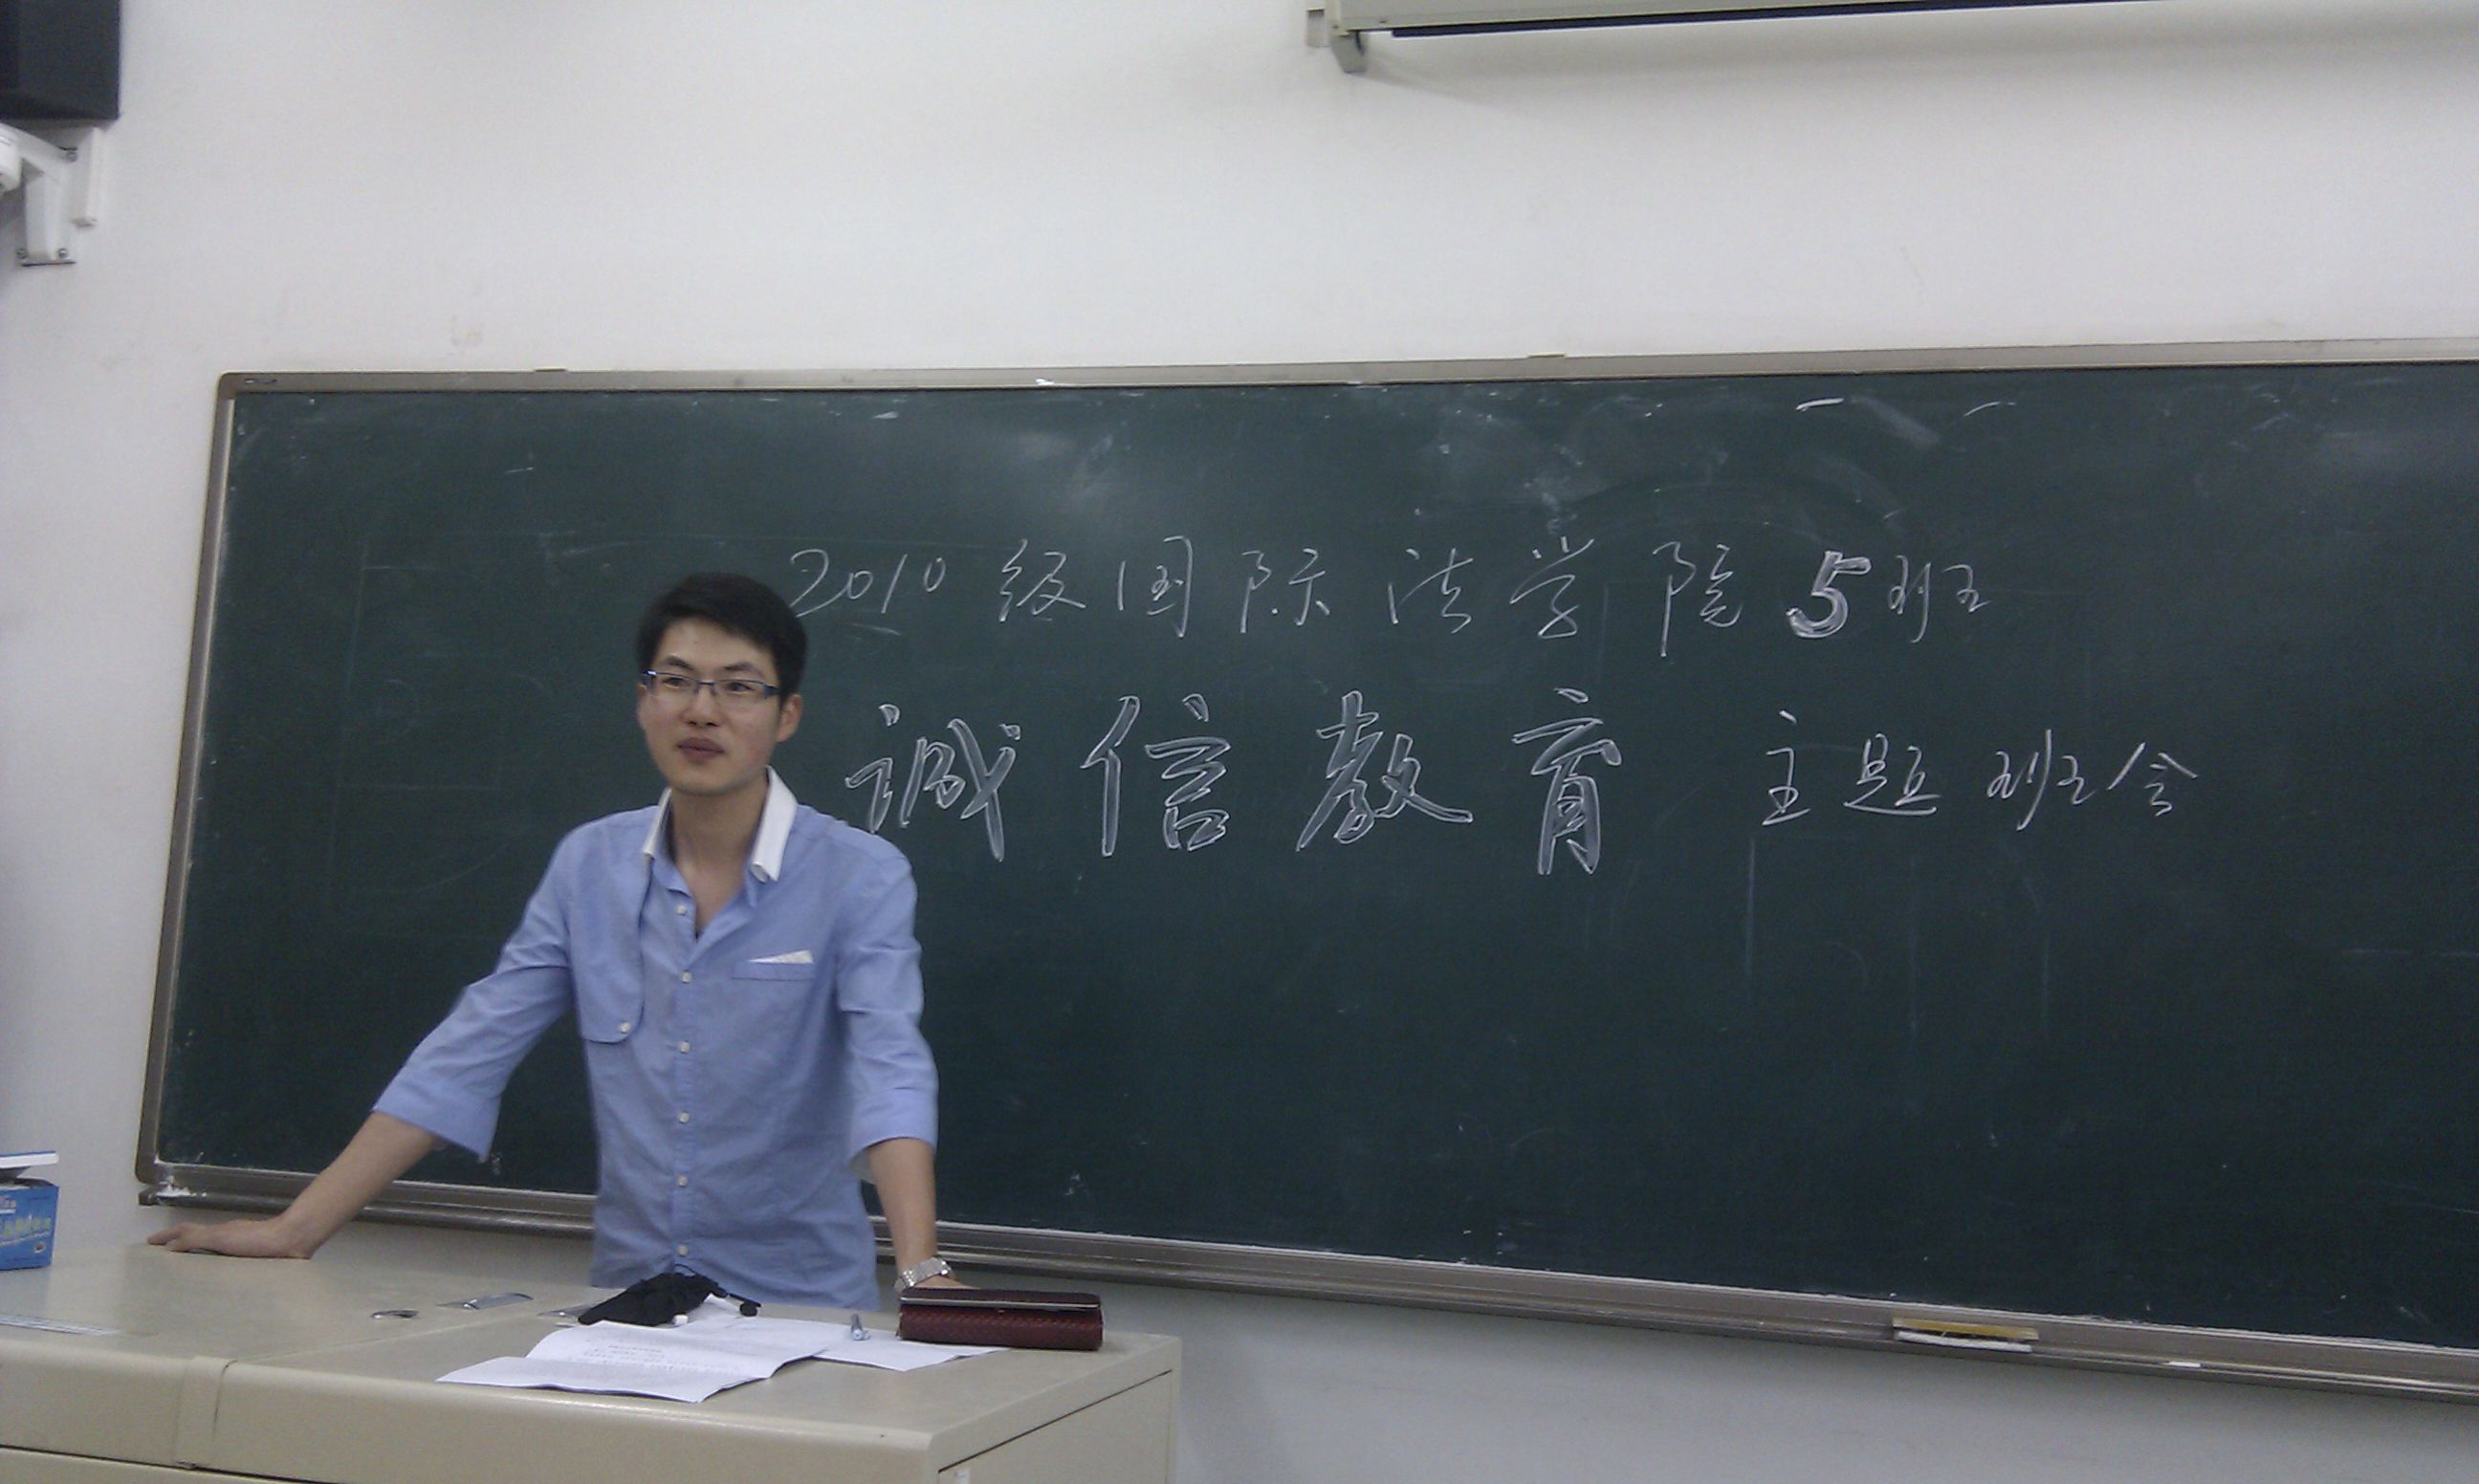 2010级国际法学院5班
诚信教育 主题班会